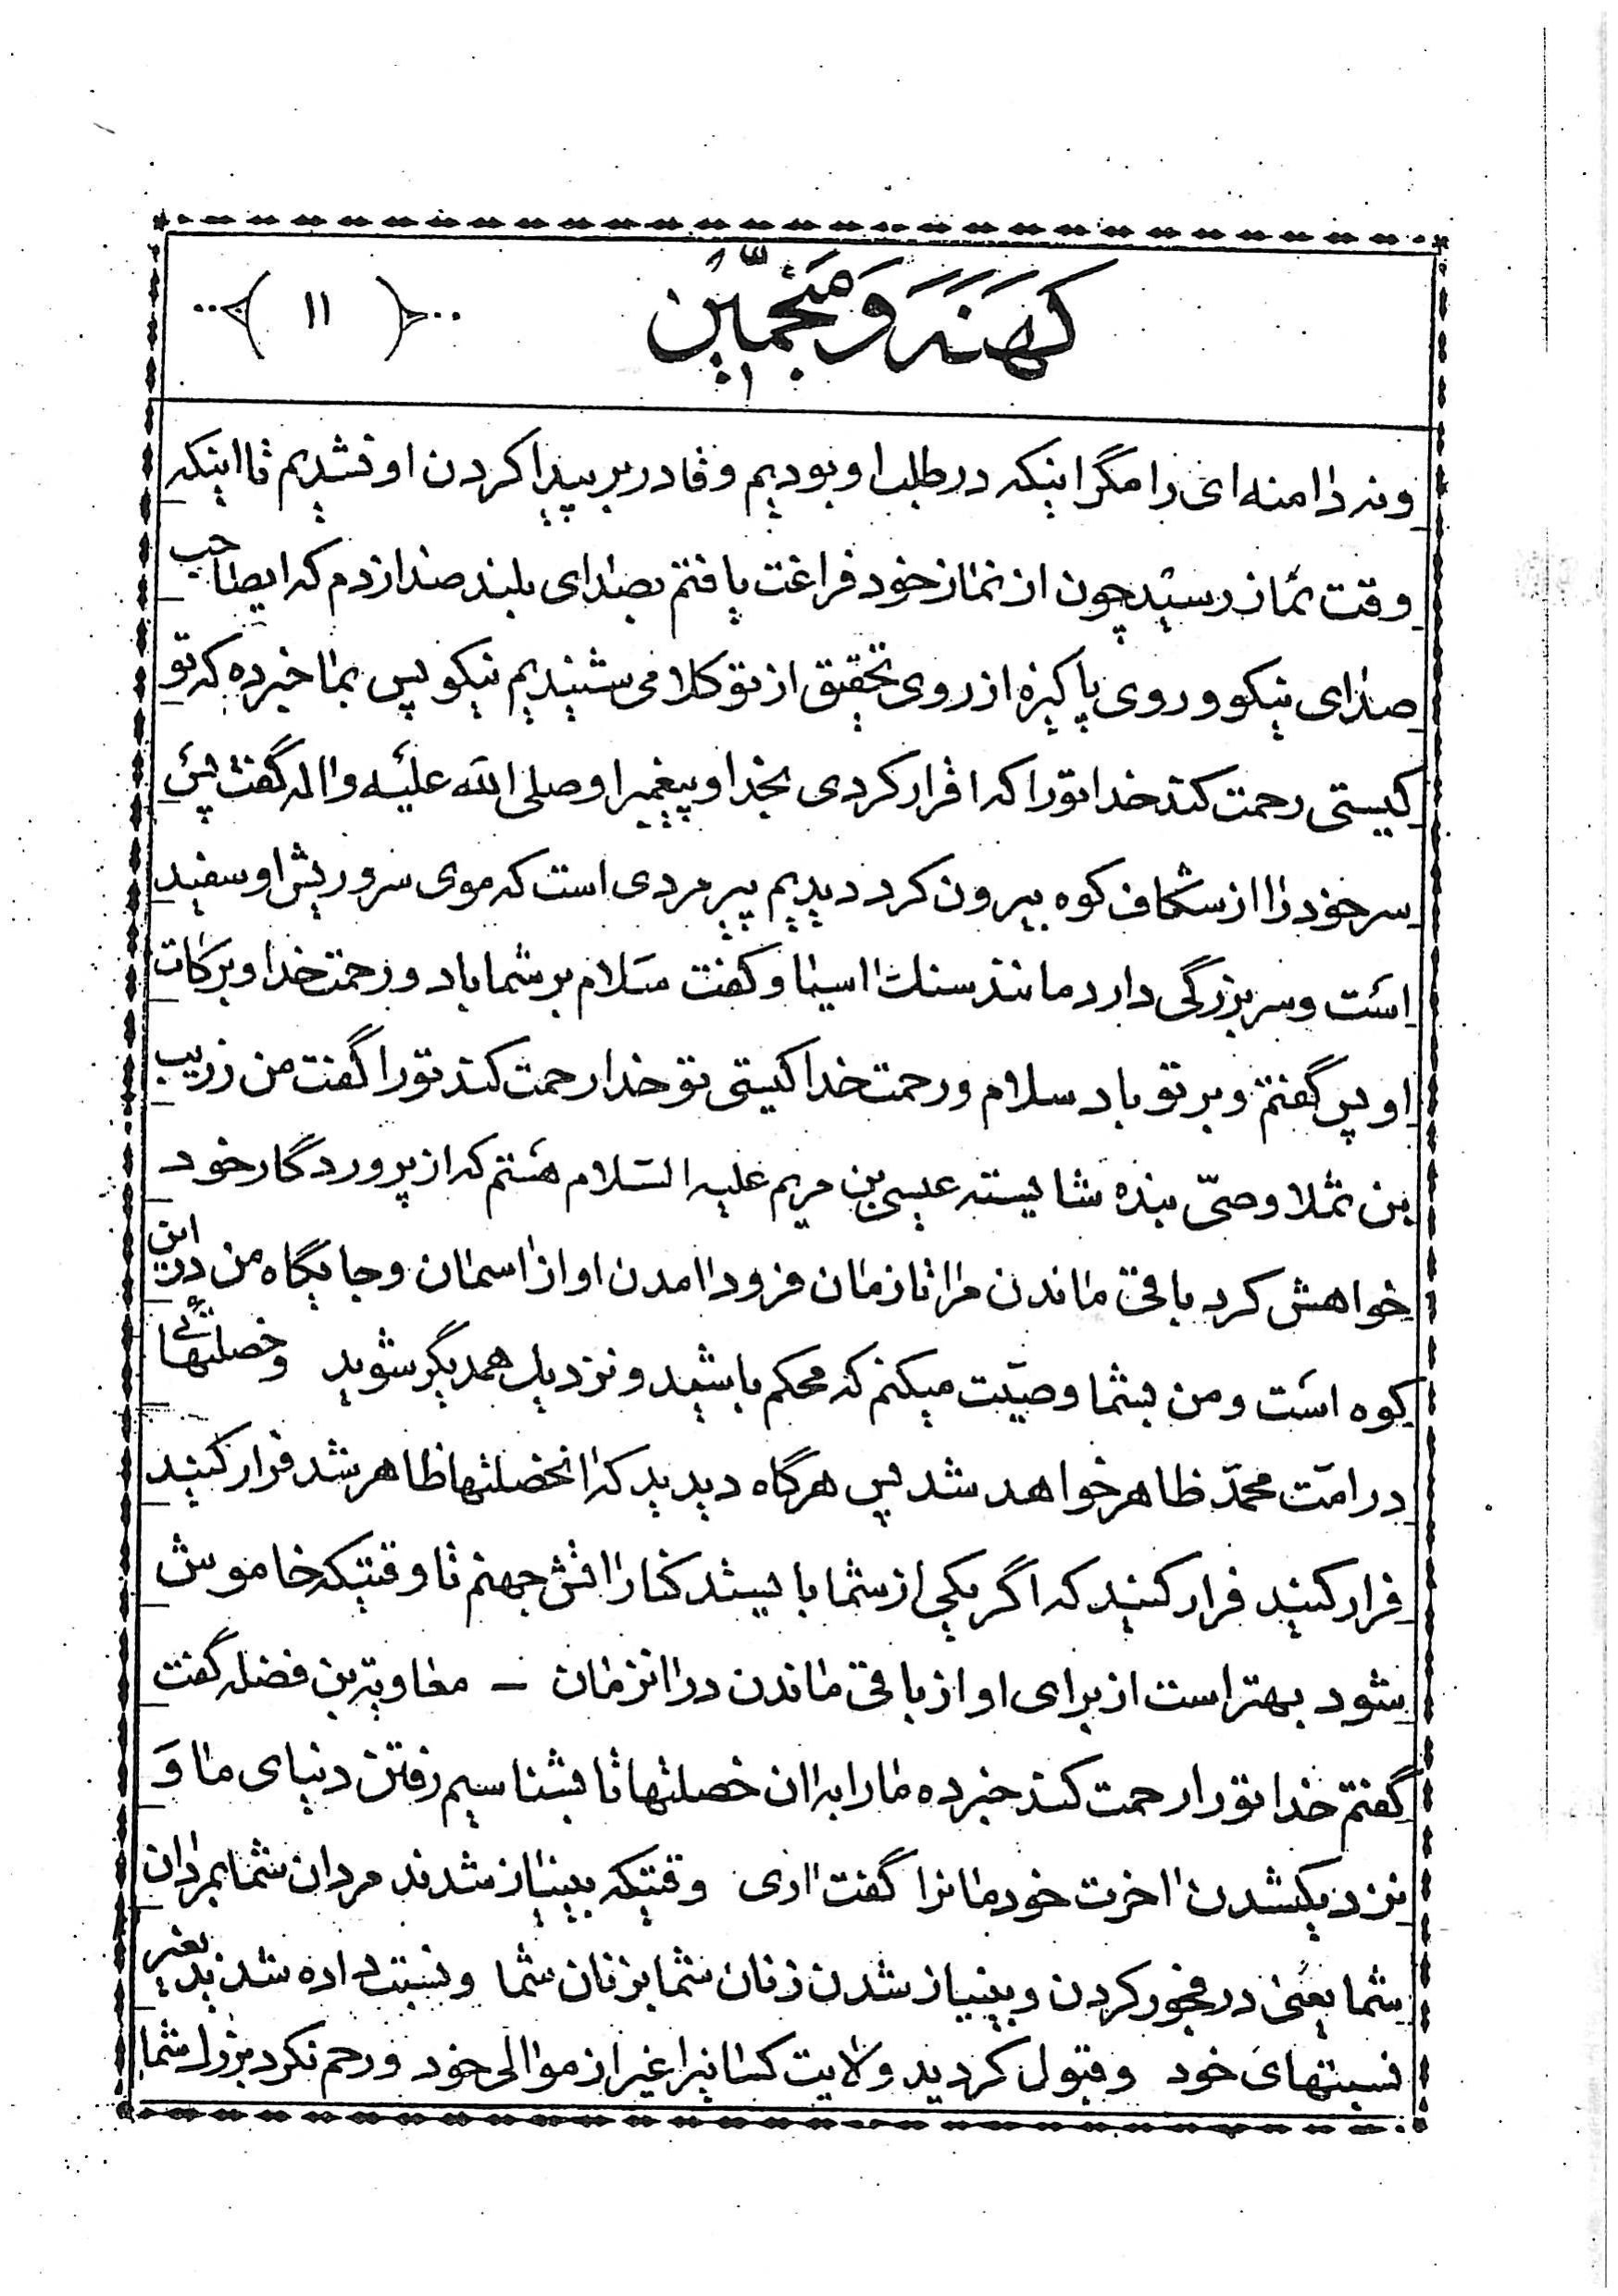 کَهَنَه وَ مُنَجِّمین
(۱۱)
ونه دامنه ای را مگر اینکه در طلب او بودیم وقادر بر پیدا کردن او نشدیم تا اینکه
وقت نماز رسید چون از نماز خود فراغت یافتم بصدای بلند صدا زدم که ایصاحب
صدای نیکو و روی پاکیزه از روی تحقیق از تو کلامی شنیدیم نیکو پس بما خبر ده که تو
کیستی رحمت کند خدا تو را که اقرار کردی بخدا و پیغمبر او صلی الله علیه واله گفت پس
سر خود را از شکاف کوه بیرون کرد دیدیم پیر مردی است که موی سر و ریش او سفید
است و سر بزرگی دارد مانند سنك اسیا و گفت سلام بر شما باد و رحمت خدا و برکات
او پس گفتم و بر تو باد سلام و رحمت خدا کیستی تو خدا رحمت کند تو را گفت من زریب
بن ثملا وصیّ بنده شایسته عیسی بن مریم علیه السّلام هستم که از پروردگار خود
خواهش کرد باقی ماندن مرا تا زمان فرود امدن او از اسمان و جایگاه من در این
کوه است و من بشما وصیّت میکنم که محکم باشید و نزدیك همدیگر شوید و خصلتهائی
در امّت محمّد ظاهر خواهد شد پس هرگاه دیدید که انخصلتها ظاهر شد فرار کنید
فرار کنید فرار کنید که اگر یکی از شما بایستد کنار اتش جهنم تا وقتیکه خاموش
شود بهتر است از برای او از باقی ماندن در انزمان – معاویة بن فضله گفت
گفتم خدا تو را رحمت کند خبر ده ما را به ان خصلتها تا بشناسیم رفتن دنیای ما وَ
نزدیکشدن اخرت خودمانرا گفت اری وقتیکه بینیاز شدند مردان شما بمردان
شما یعنی در فجور کردن و بینیاز شدن زنان شما بزنان شما و نسبت داده شدند بغیر
نسبتهای خود و قبول کردید ولایت کسانیرا غیر از موالی خود و رحم نکرد بزرك شما